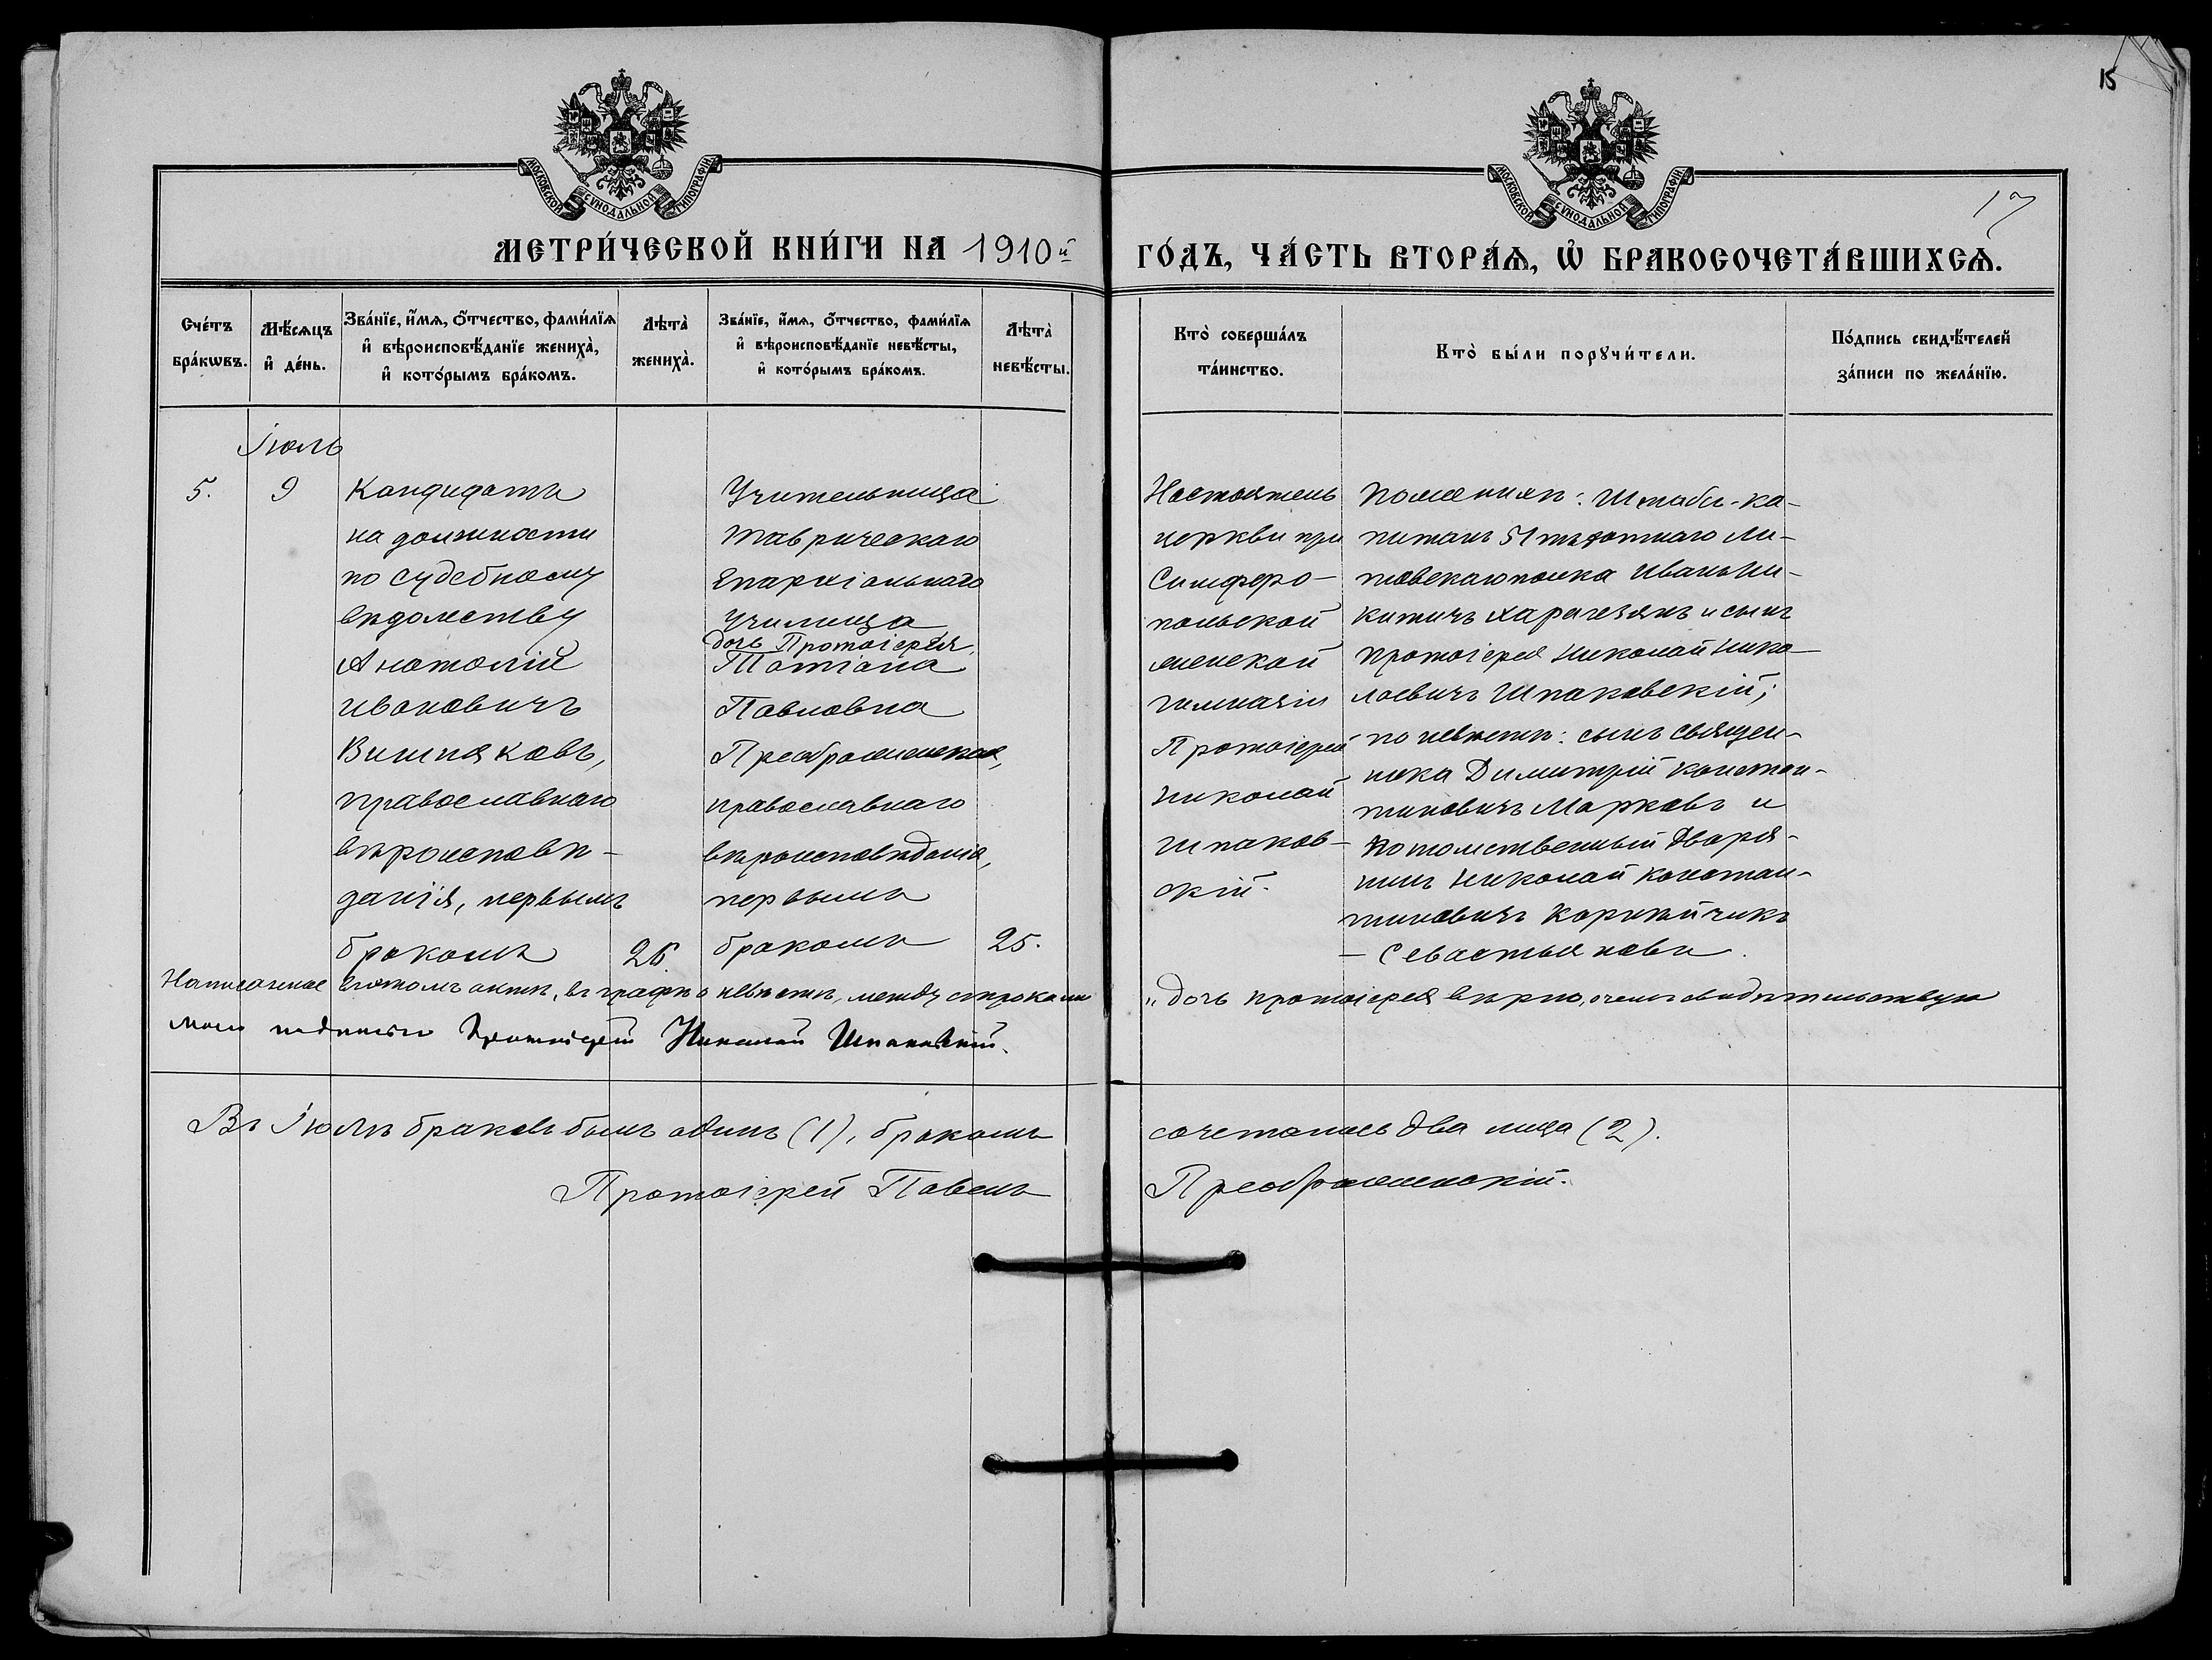 15
МОСКОВСКОЙ СѴНОДАЛЬНОЙ ТИПОГРАФІИ
МОСКОВСКОЙ СѴНОДАЛЬНОЙ ТИПОГРАФІИ
17
МЕТРИ́ЧЕСКОЙ КНИ́ГИ НА 1910й
ГО́ДЪ, ЧА́СТЬ ВТОРА́Ѧ, Ѡ҆ БРАКОСОЧЕТА́ВШИХСѦ.
Сче́тъ
бра́кѡвъ.
Мѣ́сѧцъ
и҆ де́нь.
Зва́нїе, и҆́мѧ, ѻ҆́тчество, фами́лїѧ
и҆ вѣроисповѣ́данїе жениха̀,
и҆ кото́рымъ бра́комъ.
Лѣта̀
жениха̀.
Зва́нїе, и҆́мѧ, ѻ҆́тчество, фами́лїѧ
и҆ вѣроисповѣ́данїе невѣ́сты,
и҆ кото́рымъ бра́комъ.
Лѣта̀
невѣ́сты.
Кто̀ соверша́лъ
та́инство.
Кто̀ бы́ли порꙋчи́тели.
По́дпись свидѣ́телей
за́писи по жела́нїю.
Іюль
5.
9
Кандидатъ
на должности
по судебному
вѣдомству
Анатолій
Ивановичъ
Вишняковъ,
православнаго
вѣроисповѣ-
данія, первымъ
бракомъ
26
Учительница
Таврическаго
Епархіальнаго
Училища
дочь Протоіерея
Татіана
Павловна
Преображенская,
православнаго
вѣроисповѣданія,
первымъ
бракомъ
25.
Настоятель
церкви при
Симферо-
польской
женской
гимназіи
Протоіерей
Николай
Шпаков-
скій.
По женихѣ: Штабсъ-ка-
питанъ 51 пѣхотнаго Ли-
товскаго полка Иванъ Ни-
китичъ Харагезянъ и сынъ
протоіерея Николай Нико-
лаевичъ Шпаковскій;
по невѣстѣ: сынъ священ-
ника Димитрій Констан-
тиновичъ Марковъ и
Потомственный Дворя-
нинъ Николай Констан-
тиновичъ Карпѣйчикъ
- Севастьяновъ.
Написанное въ этомъ актѣ, въ графѣ о невѣстѣ, между строками
„дочь протоіерея вѣрно, о чемъ свидѣтельствую
моею подписью Протоіерей Николай Шпаковскій.
Въ Іюлѣ браковъ былъ одинъ (1), бракомъ
сочетались два лица (2).
Протоіерей Павелъ
Преображенскій.